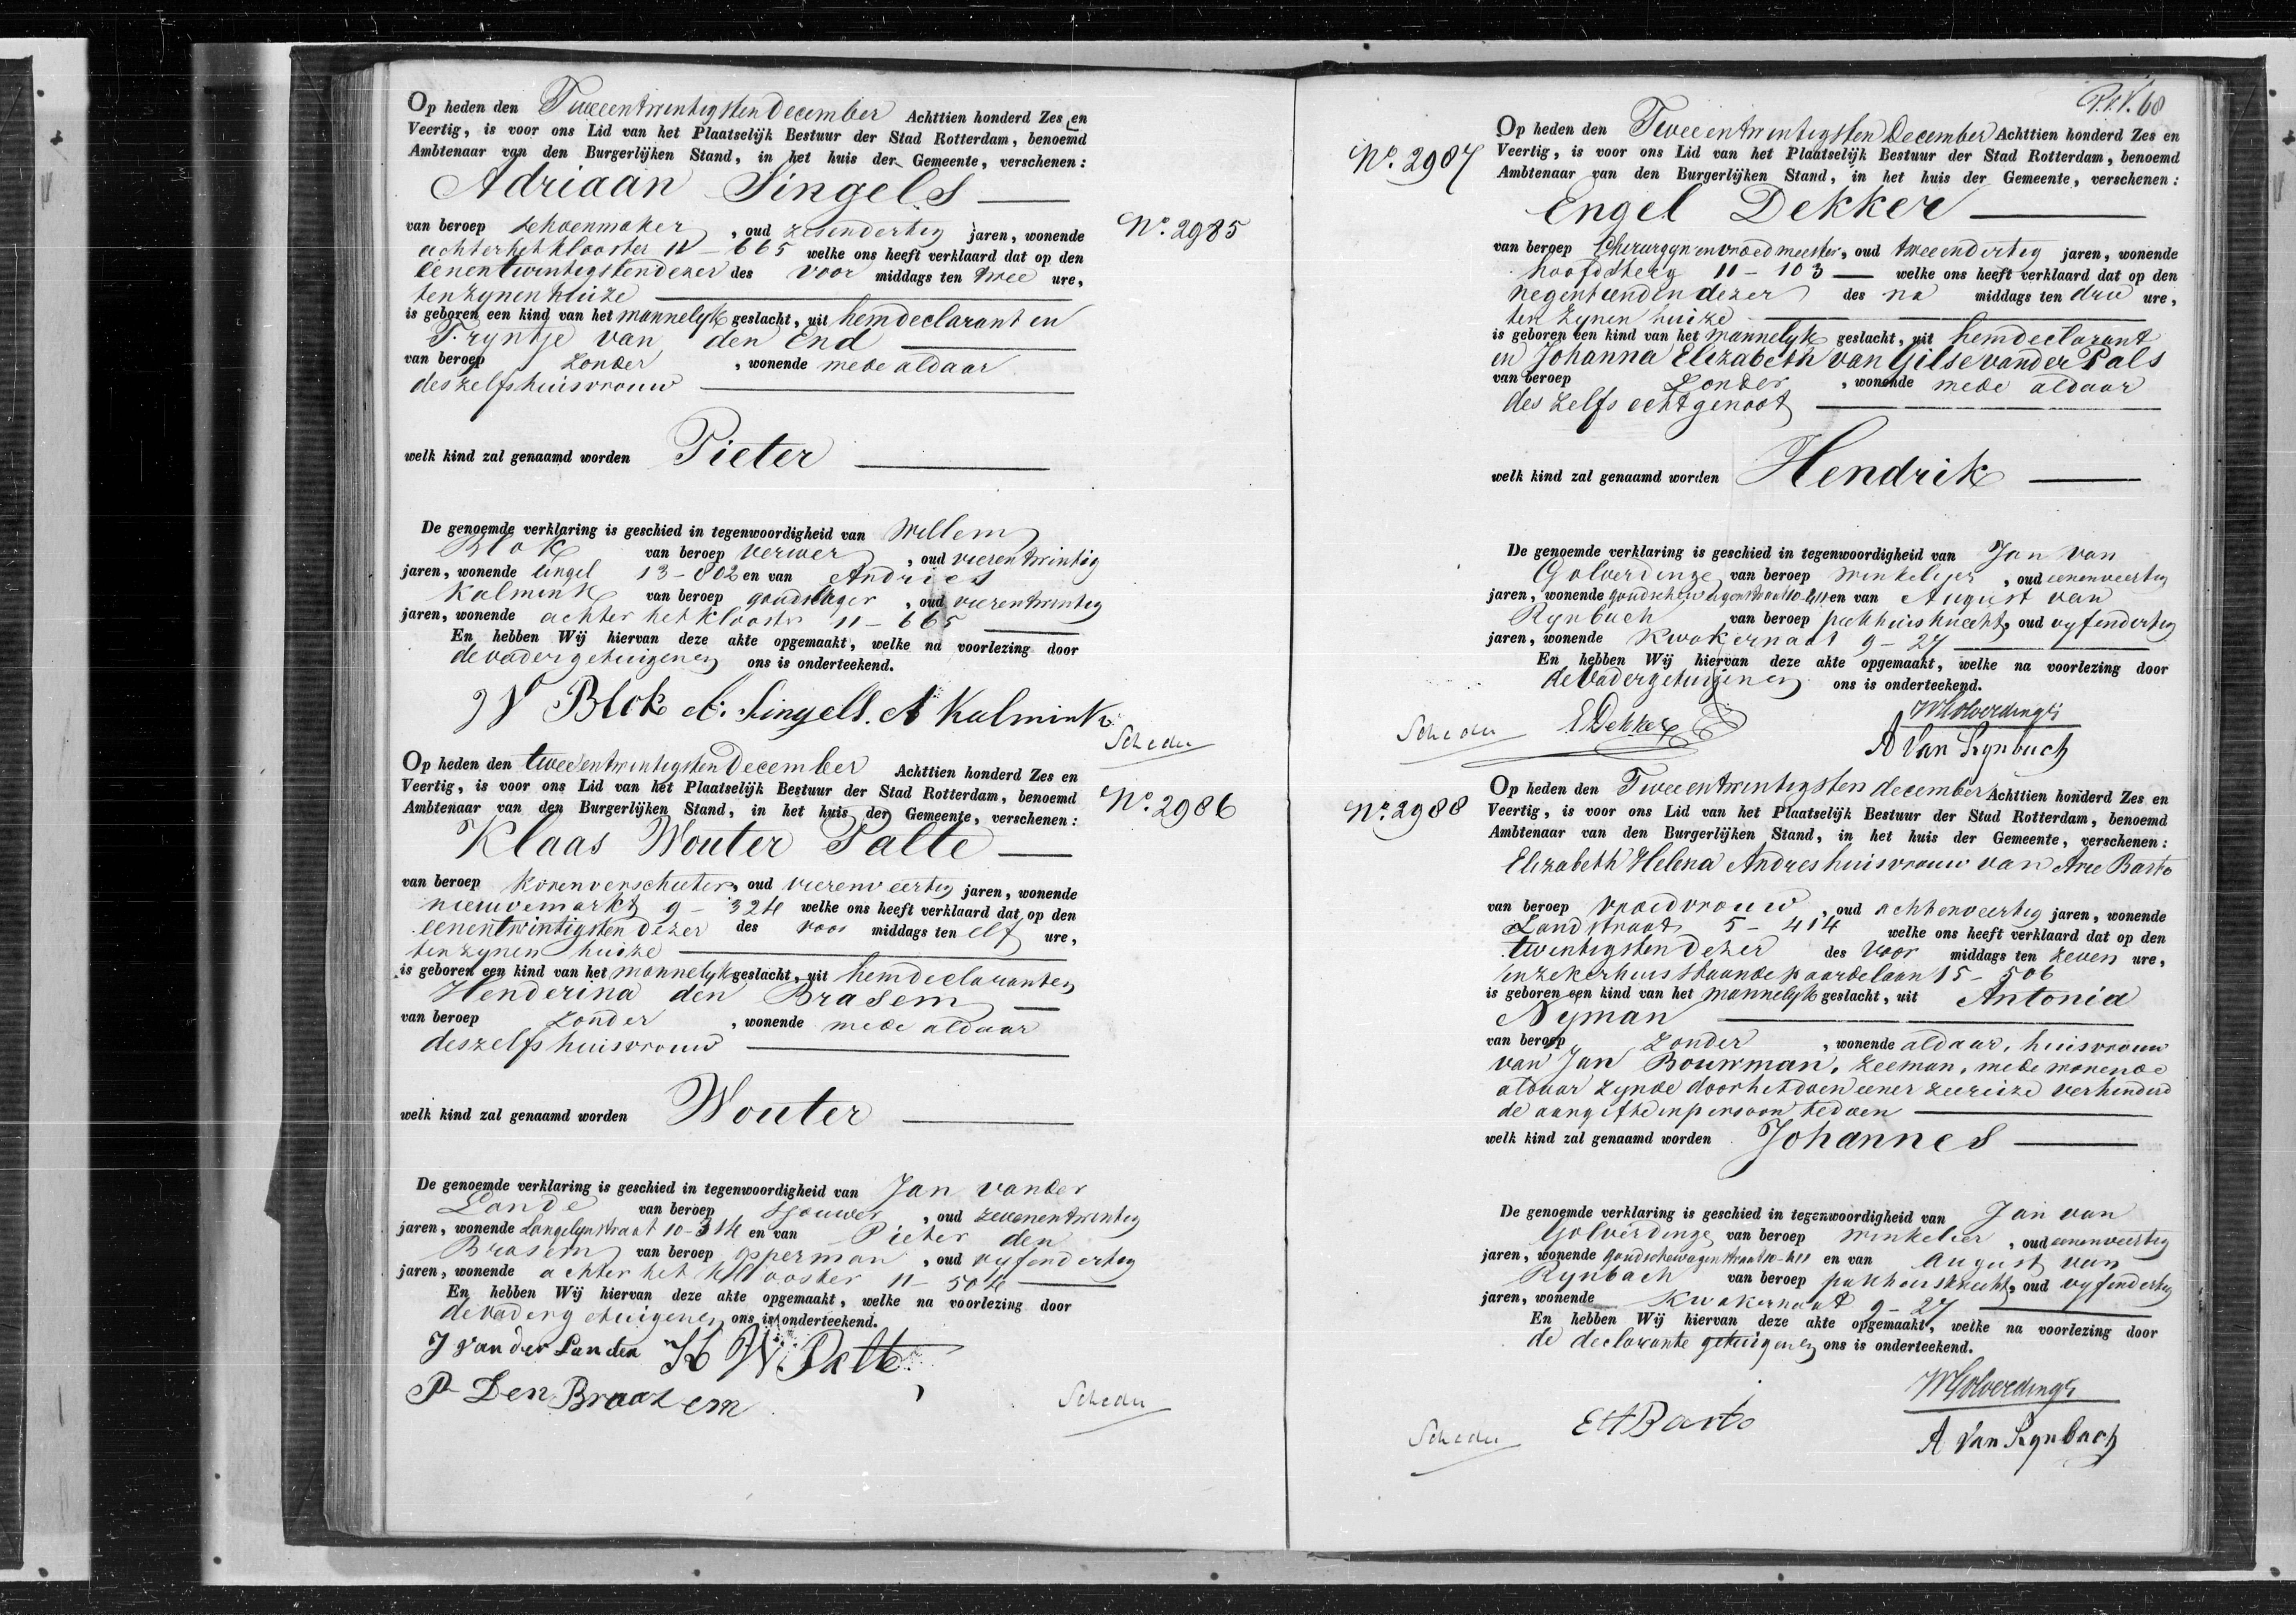 Op heden den Tweeentwintigsten December Achttien honderd Zes en
Veertig, is voor ons Lid van het Plaatselijk Bestuur der Stad Rotterdam, benoemd
Ambtenaar van den Burgerlijken Stand, in het huis der Gemeente, verschenen:
Adriaan Singels
van beroep schoenmaker, oud zesendertig jaren, wonende
No. 2985
achter het klooster 11-665 welke ons heeft verklaard dat op den
eenentwintigsten dezer des voor middags ten twee ure,
ten zynen huize
is geboren een kind van het mannelyk geslacht, uit hem declarant en
Tryntje van den End
van beroep zonder, wonende mede aldaar
deszelfs huisvrouw
welk kind zal genaamd worden Pieter
De genoemde verklaring is geschied in tegenwoordigheid van Willem
Blok van beroep verwer, oud vierentwintig
jaren, wonende singel 13-802 en van Andries
Kalmink van beroep goudslager, oud vierentwintig
jaren, wonende achter het klooster 11-665
En hebben Wij hiervan deze akte opgemaakt, welke na voorlezing door
de vader getuigen en ons is onderteekend.
W Blok A. Singels. A Kalmink
Op heden den tweeentwintigsten December Achttien honderd Zes en
Veertig, is voor ons Lid van het Plaatselijk Bestuur der Stad Rotterdam, benoemd
Ambtenaar van den Burgerlijken Stand, in het huis der Gemeente, verschenen:
No. 2986
Klaas Wouter Palte
van beroep korenverschieter, oud vierenveertig jaren, wonende
nieuwemarkt 9-324 welke ons heeft verklaard dat op den
eenentwintigsten dezer des voor middags ten elf ure,
ten zynen huize
is geboren een kind van het mannelyk geslacht, uit hem declarant en
Henderina den Brasem
van beroep zonder, wonende mede aldaar
deszelfs huisvrouw
welk kind zal genaamd worden Wouter
De genoemde verklaring is geschied in tegenwoordigheid van Jan vander
Lande van beroep sjouwer, oud zevenentwintig
jaren, wonende Langelynstraat 10-314 en van Pieter den
Brasem van beroep opperman, oud vyfendertig
jaren, wonende achter het klooster 11-504
En hebben Wij hiervan deze akte opgemaakt, welke na voorlezing door
de vader getuigen en ons is onderteekend.
J van der Landen K W. Palte
P Den Braazem
P.V.V. 68
Op heden den Tweeentwintigsten December Achttien honderd Zes en
No. 2987
Veertig, is voor ons Lid van het Plaatselijk Bestuur der Stad Rotterdam, benoemd
Ambtenaar van den Burgerlijken Stand, in het huis der Gemeente, verschenen:
Engel Dekker
van beroep Chirurgyn en vroedmeester, oud tweeendertig jaren, wonende
hoofdsteeg 11-103 welke ons heeft verklaard dat op den
negentienden dezer des na middags ten drie ure,
ten zynen huize
is geboren een kind van het mannelyk geslacht, uit hem declarant
en Johanna Elizabeth van Gilse vander Pals
van beroep zonder, wonende mede aldaar
des zelfs echtgenoot
welk kind zal genaamd worden Hendrik
De genoemde verklaring is geschied in tegenwoordigheid van Jan van
Golverdinge van beroep winkelier, oud eenenveertig
jaren, wonende goudschewagenstraat 10-811 en van August van
Rynbach van beroep pakhuisknecht, oud vyfendertig
jaren, wonende Kwakernaat 9-27
En hebben Wij hiervan deze akte opgemaakt, welke na voorlezing door
de Vader getuigen en ons is onderteekend.
E Dekker
A Van Rynbach
Op heden den Tweeentwintigsten december Achttien honderd Zes en
No. 2988
Veertig, is voor ons Lid van het Plaatselijk Bestuur der Stad Rotterdam, benoemd
Ambtenaar van den Burgerlijken Stand, in het huis der Gemeente, verschenen:
Elizabeth Helena Andres huisvrouw van Arie Barto
van beroep vroedvrouw, oud achtenveertig jaren, wonende
Zandstraat 5-414 welke ons heeft verklaard dat op den
twintigsten dezer des voor middags ten zeven ure,
in zeker huis staande paardelaan 15-506
is geboren een kind van het mannelyk geslacht, uit Antonia
Nyman
van beroep zonder, wonende aldaar, huisvrouw
van Jan Bouwman, zeeman, mede wonende
aldaar zynde door het doen eener zeereize verhinderd
de aangifte in persoon te doen
welk kind zal genaamd worden Johannes
De genoemde verklaring is geschied in tegenwoordigheid van Jan van
Golverdinge van beroep winkelier, oud eenenveertig
jaren, wonende goudschewagenstraat 10-811 en van August van
Rynbach van beroep pakhuisknecht, oud vyfendertig
jaren, wonende Kwakernaat 9-27
En hebben Wij hiervan deze akte opgemaakt, welke na voorlezing door
de declarante getuigen en ons is onderteekend.
EH Barto
A Van Rynbach